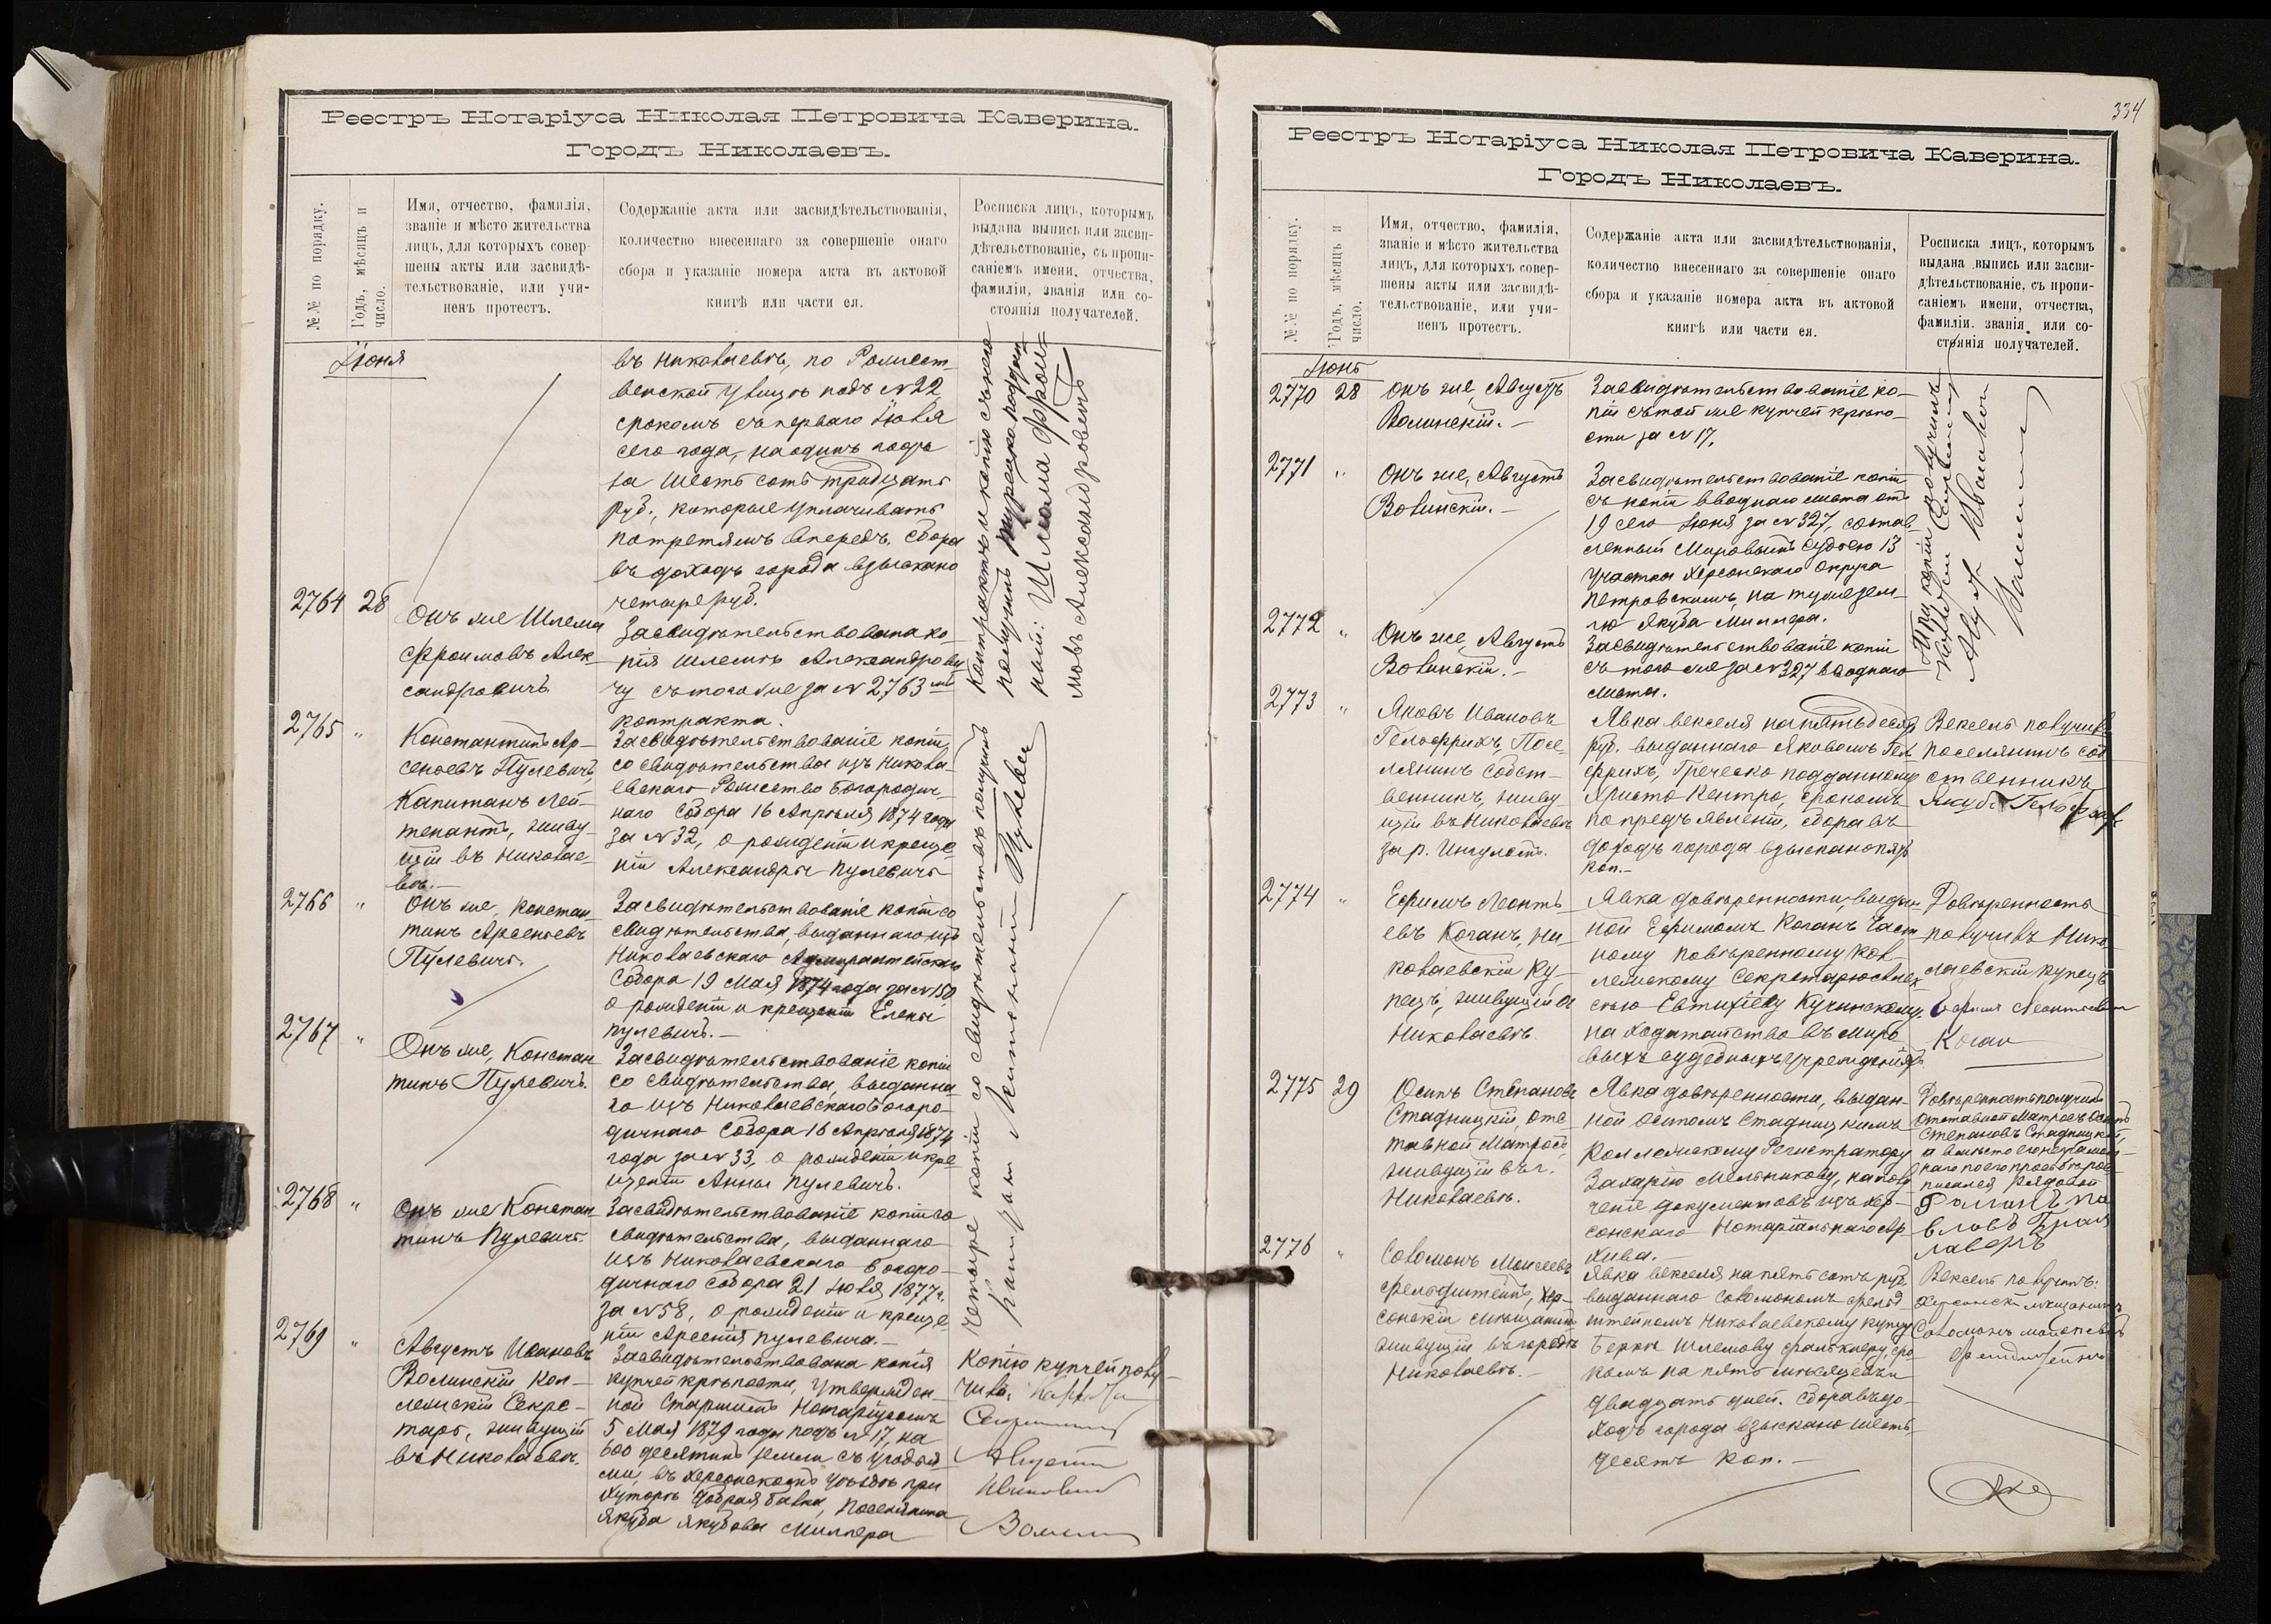 Реестръ Нотаріуса Николая Петровича Каверина.
Городъ Николаевъ.
№№ по порядку.
Годъ, мѣсяцъ и
число.
Имя, отчество, фамилія,
званіе и мѣсто жительства
лицъ, для которыхъ совер-
шены акты или засвидѣ-
тельствованіе, или учи-
ненъ протестъ.
Содержаніе акта или засвидѣтельствованія,
количество внесеннаго за совершеніе онаго
сбора и указаніе номера акта въ актовой
книгѣ или части ея.
Росписка лицъ, которымъ
выдана выпись или засви-
дѣтельствованіе, съ пропи-
саніемъ имени, отчества,
фамиліи, званія или со-
стоянія получателей.
Іюня
въ Николаевѣ, по Рождест-
венской улицѣ подъ №22,
срокомъ съ перваго Іюля
сего года, на одинъ годъ
за шесть сотъ тридцать
руб., которые уплачивать
по третямъ впередъ. Сбора
въ доходъ города взыскано
четыре руб.
2764 28
Онъ же Шлема
Фроимовъ Алек-
сандровичъ
Засвидѣтельствована ко-
пія Шлемѣ Александрови-
чу съ того же за №2763
контракта.
Контрактъ и копію съ него
получилъ турецко поддан
ный: Шлома Фрои=
мовъ Александровичъ
2765 "
Константинъ Ар-
сеньевъ Пулевичъ,
Капитанъ Лей-
тенантъ, живу-
щій въ Николае-
вѣ.-
Засвидѣтельствованіе копіи,
со свидѣтельства изъ Никола-
евскаго Рождество Богородич-
наго Собора 16 Апрѣля 1874 года
за №32, о рожденіи и креще-
ніи Александры Пулевичъ
2766 "
Онъ же, Констан-
тинъ Арсеньевъ
Пулевичъ.
Засвидѣтельствованіе копіи со
свидѣтельства, выданнаго изъ
Николаевскаго Адмиралтейскаго
Собора 19 Мая 1874 года за №150
о рожденіи и крещеніи Елены
Пулевичъ.-
2767 "
Онъ же, Констан
тинъ Пулевичъ.
Засвидѣтельствованіе копіи
со свидѣтельства, выданна-
го изъ Николаевскаго Богоро-
дичнаго Собора 16 Апрѣля 1874
года за №33, о рожденіи и кре-
щеніи Анны Пулевичъ.
2768 "
Онъ же Констан-
тинъ Пулевичъ.
Засвидѣтельствованіе копіи со
свидѣтельства, выданнаго
изъ Николаевскаго Богоро-
дичнаго Собора 21 Іюля 1877 г.
за №58, о рожденіи и креще-
ніи Арсенія Пулевича.-
Четыре копіи со свидѣтельствъ получилъ
Капитан Лейтенант Пулевич
2769 "
Августъ Ивановъ
Волинскій Кол-
лежскій Секре-
тарь, живущій
въ Николаевѣ.
Засвидѣтельствована копія
купчей крѣпости, утвержден-
ной Старшимъ Нотаріусомъ
5 Мая 1879 года подъ №17, на
600 десятинъ земли съ угодья
ми, въ Херсонскомъ уѣздѣ при
хуторѣ Добрая балка, поселянина
Якуба Якубова Миллера
Копію купчей полу-
чилъ
Августъ
Ивановичъ
334
Реестръ Нотаріуса Николая Петровича Каверина.
Городъ Николаевъ.
№№ по порядку.
Годъ, мѣсяцъ и
число.
Имя, отчество, фамилія,
званіе и мѣсто жительства
лицъ, для которыхъ совер-
шены акты или засвидѣ-
тельствованіе, или учи-
ненъ протестъ.
Содержаніе акта или засвидѣтельствованія,
количество внесеннаго за совершеніе онаго
сбора и указаніе номера акта въ актовой
книгѣ или части ея.
Росписка лицъ, которымъ
выдана выпись или засви-
дѣтельствованіе, съ пропи-
саніемъ имени, отчества,
фамиліи, званія, или со-
стоянія получателей.
Іюнь
2770 28
Онъ же, Августъ
Волинскій.-
Засвидѣтельствованіе ко-
піи съ той же купчей крѣпо-
сти за №17.
2771 "
Онъ же, Августъ
Волинскій.-
Засвидѣтельствованіе копіи
съ копіи вводнаго листа отъ
19 сего Іюня за №327, состав
ленный Мировымъ судьею 13
участка Херсонскаго округа
Петровскимъ, на туже зем-
лю Якуба Миллера.
2772 "
Онъ же, Августъ
Волинскій.-
Засвидѣтельствованіе копіи
съ того же за №327 вводнаго
листа.
Три копіи получилъ
2773 "
Яковъ Ивановъ
Гельфрихъ, Посе-
лянинъ собст-
венникъ, живу-
щій въ Николаевѣ
за р. Ингуломъ.
Явка векселя на пятьдесят
руб. выданнаго Яковомъ Гел
фрихъ, Греческо подданному
Христо Кентро, срокомъ
по предъявленіи, сбора въ
доходъ города взыскано пять
коп.-
Вексель получилъ
поселянинъ соб
ственникъ
Якубъ
2774 "
Ефимъ Леонть-
евъ Коганъ, Ни-
колаевскій Ку-
пецъ, живущій въ
Николаевѣ.
Явка довѣренности, выдан-
ной Ефимомъ Коганъ Част
ному повѣренному Кол-
лежскому Секретарю Алек
сѣю Евтихіеву Кучинскому,
на ходатайство въ миро
выхъ судебныхъ учрежденіях.
Довѣренность
получилъ Нико-
лаевскій купецъ
Ефимъ Леонтьевъ
Коган
2775 29
Осипъ Степановъ
Стадницкій, отс
тавной Матросъ,
живущій въ г.
Николаевѣ.
Явка довѣренности, выдан-
ной Осипомъ Стадницкимъ
Коллежскому Регистратору
Захарію Мельникову, на полу
ченіе документовъ изъ Хер-
сонскаго Нотаріальнаго Ар
хива.-
Довѣренность получилъ
отставной Матросъ Осипъ
Степановъ Стадницкій,
а вмѣсто его неграмот-
наго по его просьбѣ рос
писался Рядовой
Романъ Па
2776 "
Соломонъ Моисеевъ
Фельдштейнъ, Хер-
сонскій мѣщанинъ
живущій въ городѣ
Николаевѣ.-
Явка векселя на пять сотъ руб.
выданнаго Соломономъ Фельд
штейномъ Николаевскому купцу
Берки Шлемову Фалькнеру, сро
комъ на пять мѣсяцевъ и
двадцать дней. Сбора въ до-
ходъ города взыскано шесть
десятъ коп.-
Вексель получилъ:
Херсонскій мѣщанинъ
Соломонъ